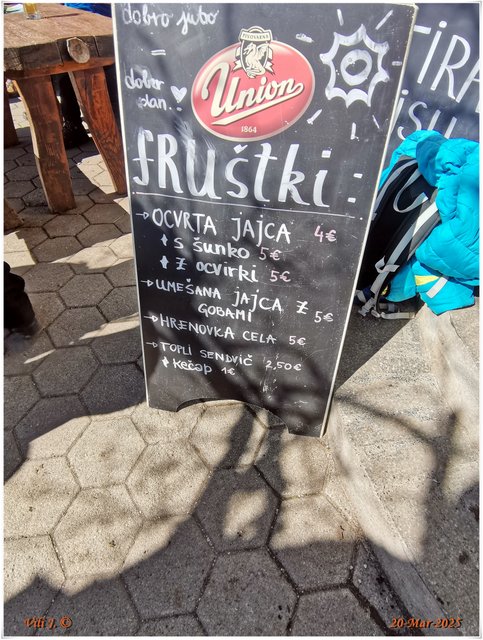 dobro jubo
dober
dan.
PIVOVARNA
Union
1864
fRuštki:
→ OCVRTA JAJCA 4€
+ s šunko 5€
+ z ocvirki 5€
→ UMEŠANA JAJCA Z
GOBAMI 5€
→ HRENOVKA CELA 5€
→ TOPLI SENDVIČ 2,50€
+ kečap 1€
Vili J. ©
20-Mar-2025